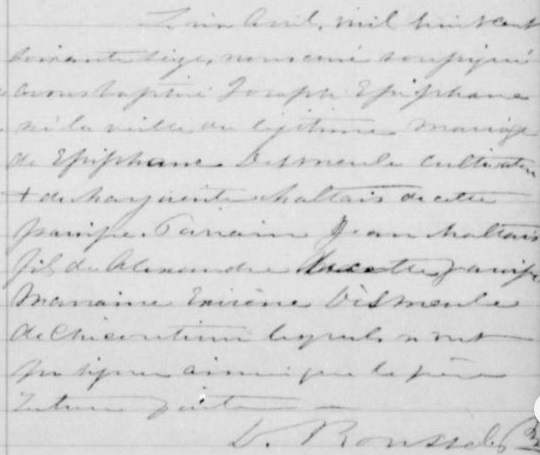 Le six Avril, mil huit cent
soixante seize, nous curé soussigné
avons baptisé Joseph Epiphane
né la veille du légitime mariage
de Epiphane Desmeule cultivateur
+ de Marguerite Maltais de cette
paroisse. Parrain Jean Maltais
fils de Alexandre de cette paroisse
Marraine Desmeule
de Chicoutimi lesquels n'ont
pu signer ainsi que le père
Lecture faite —
D. Roussel Ptre